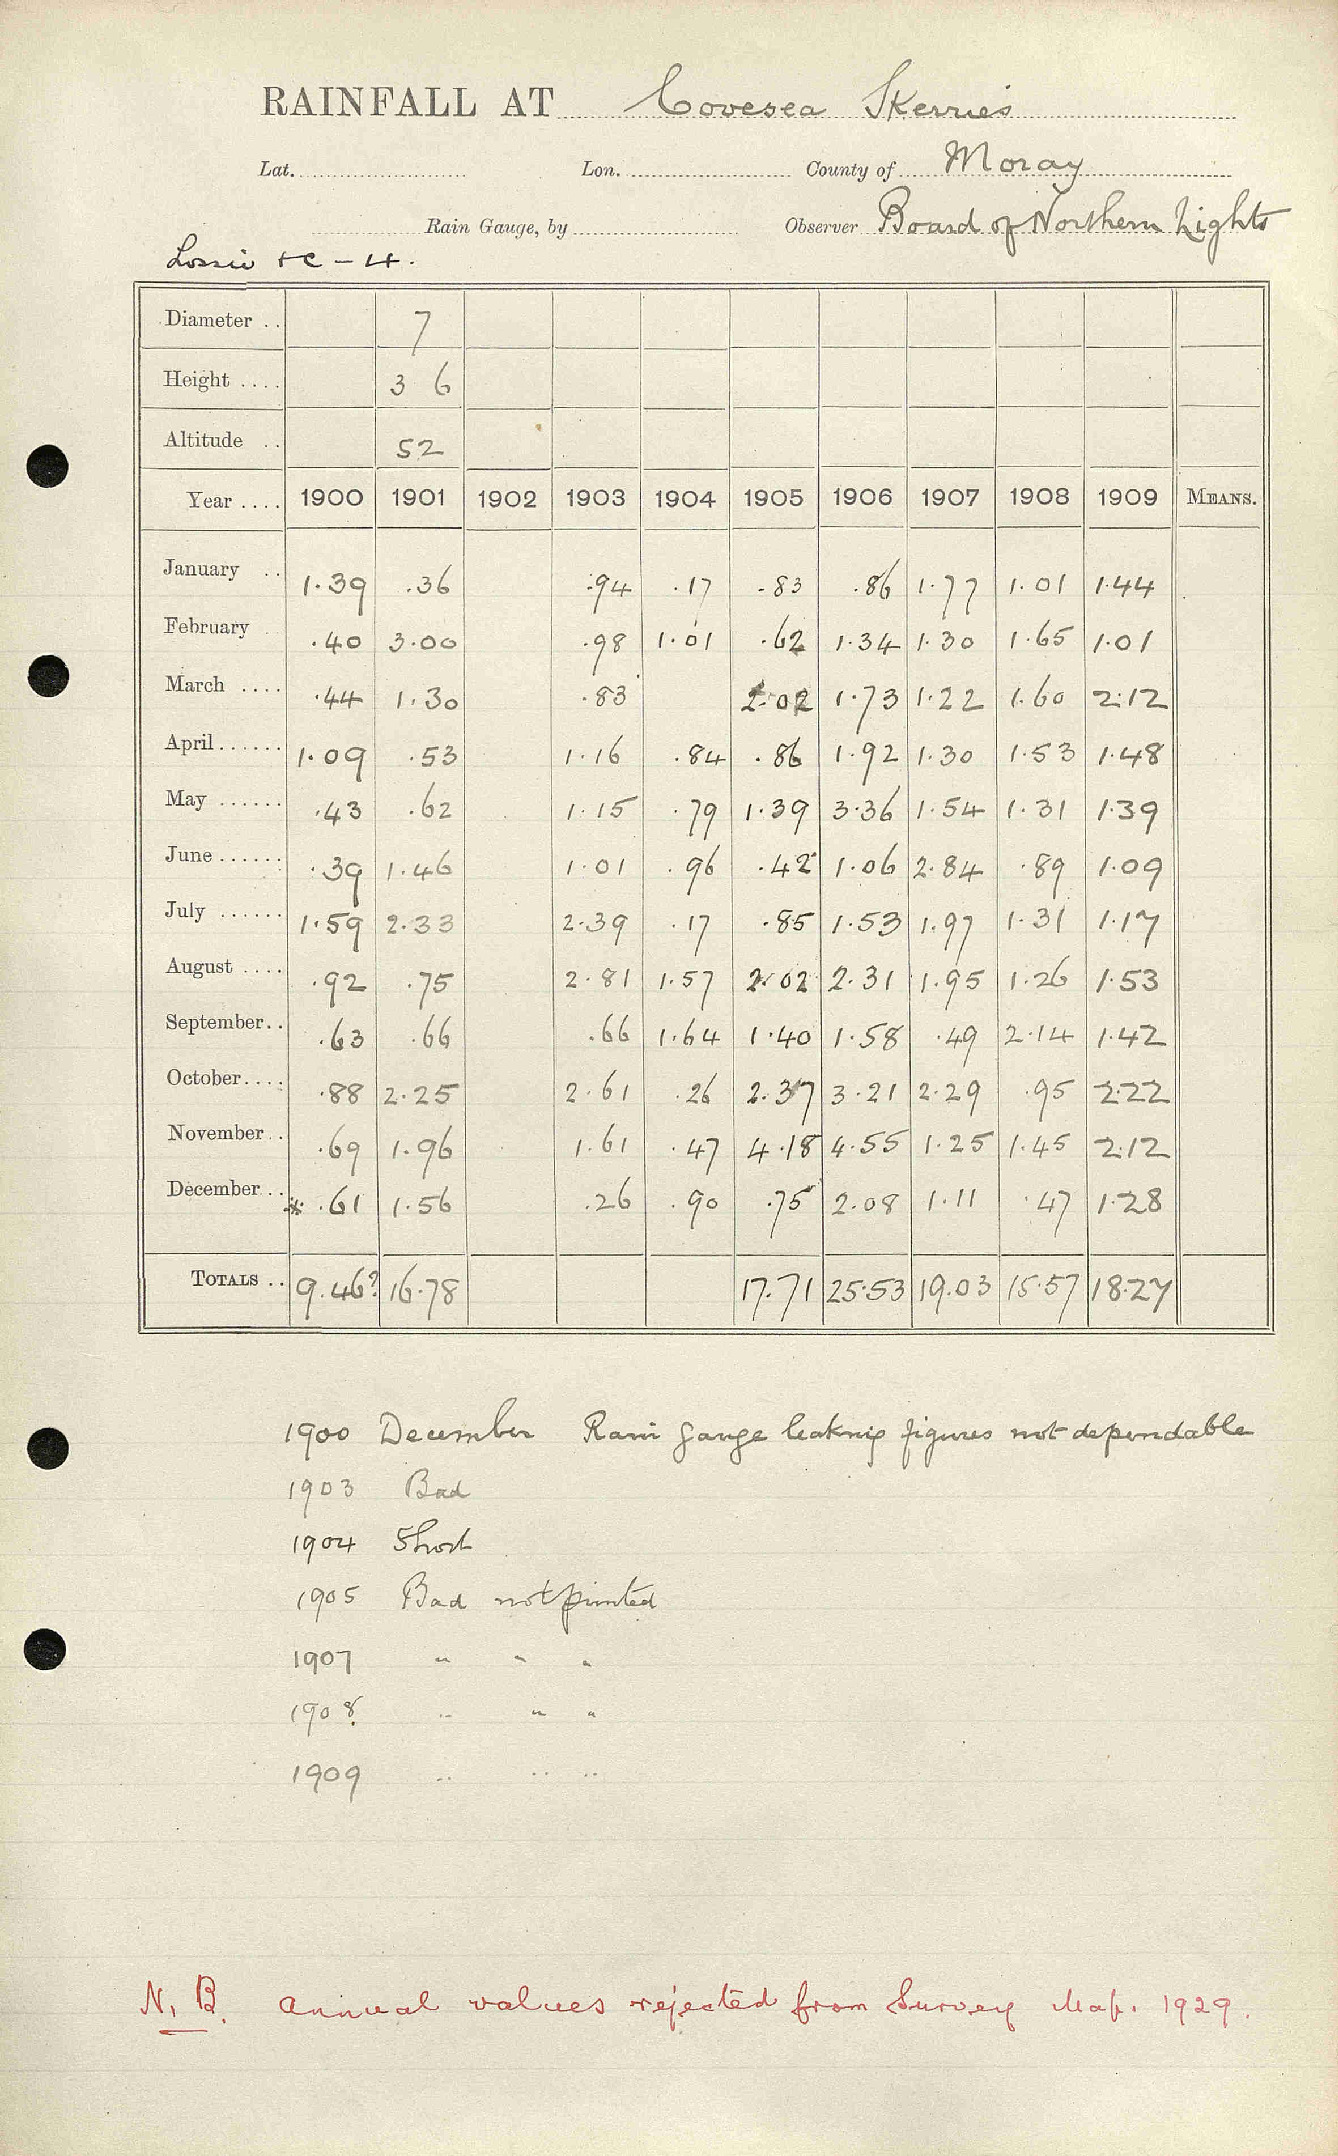 RAINFALL AT Covesea Skerries
Lat. Lon. County of Moray
Rain Gauge, by Observer Board of Northern Lights
Lossie & C - 4.
Diameter .. 7
Height .... 3 6
Altitude .. 52
Year .... 1900 1901 1902 1903 1904 1905 1906 1907 1908 1909 MEANS.
January .. 1.39 .36 .94 .17 .83 .86 1.77 1.01 1.44
February .40 3.00 .98 1.01 .62 1.34 1.30 1.65 1.01
March .... .44 1.30 .83 2.02 1.73 1.22 1.60 2.12
April ...... 1.09 .53 1.16 .84 .86 1.92 1.30 1.53 1.48
May ...... .43 .62 1.15 .79 1.39 3.36 1.54 1.31 1.39
June ...... .39 1.46 1.01 .96 .42 1.06 2.84 .89 1.09
July ...... 1.59 2.33 2.39 .17 .85 1.53 1.97 1.31 1.17
August .... .92 .75 2.81 1.57 2.02 2.31 1.95 1.26 1.53
September.. .63 .66 .66 1.64 1.40 1.58 .49 2.14 1.42
October.... .88 2.25 2.61 .26 2.37 3.21 2.29 .95 2.22
November.. .69 1.96 1.61 .47 4.18 4.55 1.25 1.45 2.12
December.. * .61 1.56 .26 .90 .75 2.08 1.11 .47 1.28
TOTALS .. 9.46? 16.78 17.71 25.53 19.03 15.57 18.27
1900 December Rain gauge leaking figures not dependable
1903 Bad
1904 Short
1905 Bad not printed
1907 " " "
1908 " " "
1909 " " "
N. B. Annual values rejected from Survey Map. 1929.